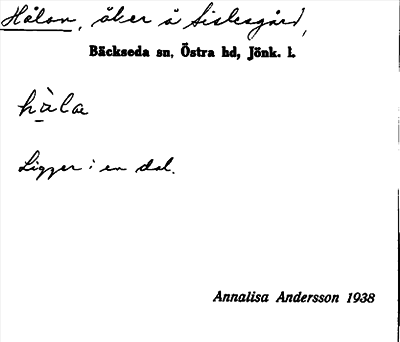 Hålan, åker å Sislesgård,
Bäckseda sn, Östra hd, Jönk. l.
hàlα
Ligger i en dal.
Annalisa Andersson 1938